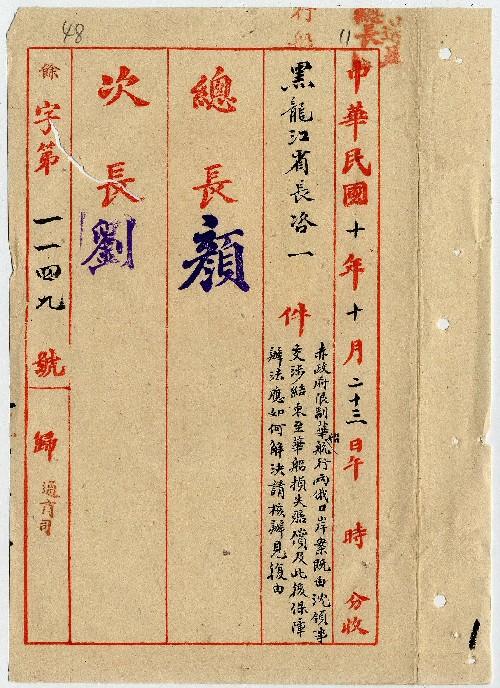 48
11
中華民國十年十月二十三日午 時 分收
黑龍江省長咨一件
赤政府限制華船航行兩俄口岸案既由沈領事
交涉結束至華船損失賠償及此後保障
辦法應如何解決請核辦見復由
總長 顏
次長 劉
餘字第一一四九號歸 通商司